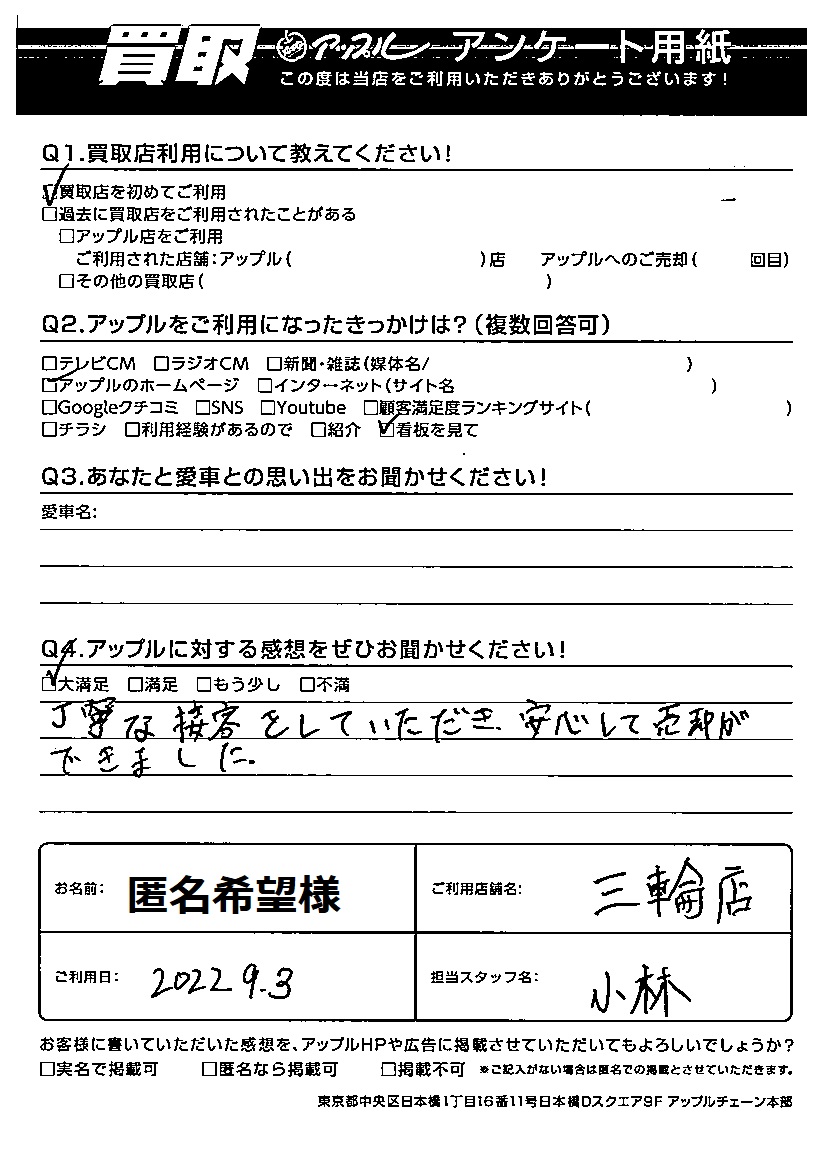 買取 アップル アンケート用紙
この度は当店をご利用いただきありがとうございます!
Q1.買取店利用について教えてください!
☑買取店を初めてご利用
□過去に買取店をご利用されたことがある
□アップル店をご利用
ご利用された店舗:アップル( )店 アップルへのご売却( 回目)
□その他の買取店( )
Q2.アップルをご利用になったきっかけは?(複数回答可)
□テレビCM □ラジオCM □新聞・雑誌(媒体名/ )
☑アップルのホームページ □インターネット(サイト名 )
□Googleクチコミ □SNS □Youtube □顧客満足度ランキングサイト( )
□チラシ □利用経験があるので □紹介 ☑看板を見て
Q3.あなたと愛車との思い出をお聞かせください!
愛車名:
Q4.アップルに対する感想をぜひお聞かせください!
☑大満足 □満足 □もう少し □不満
丁寧な接客をしていただき、安心して売却が
できました。
お名前: 匿名希望様 ご利用店舗名: 三輪店
ご利用日: 2022 9.3 担当スタッフ名: 小林
お客様に書いていただいた感想を、アップルHPや広告に掲載させていただいてもよろしいでしょうか?
□実名で掲載可 □匿名なら掲載可 □掲載不可 ※ご記入がない場合は匿名での掲載とさせていただきます。
東京都中央区日本橋1丁目16番11号日本橋Dスクエア9F アップルチェーン本部